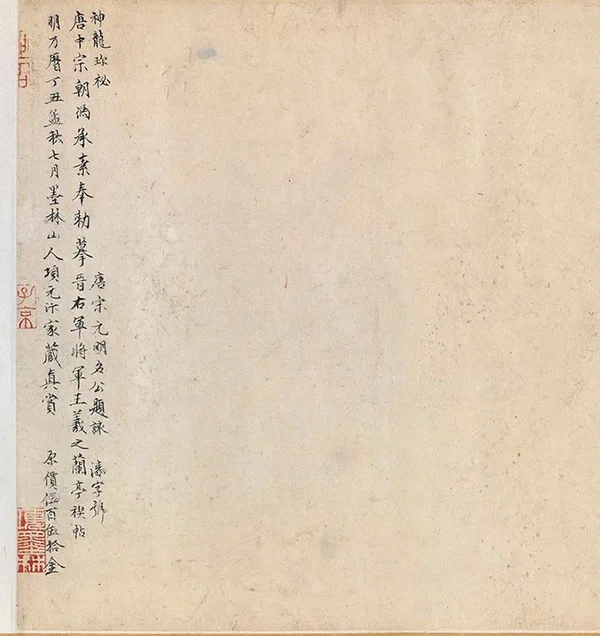 神龍珎秘　唐宋元明名公題詠　濠字號
唐中宗朝馮承素奉勅摹晉右軍將軍王羲之蘭亭禊帖
明万曆丁丑孟秋七月墨林山人項元汴家藏真賞　原價伍百伍拾金
子京